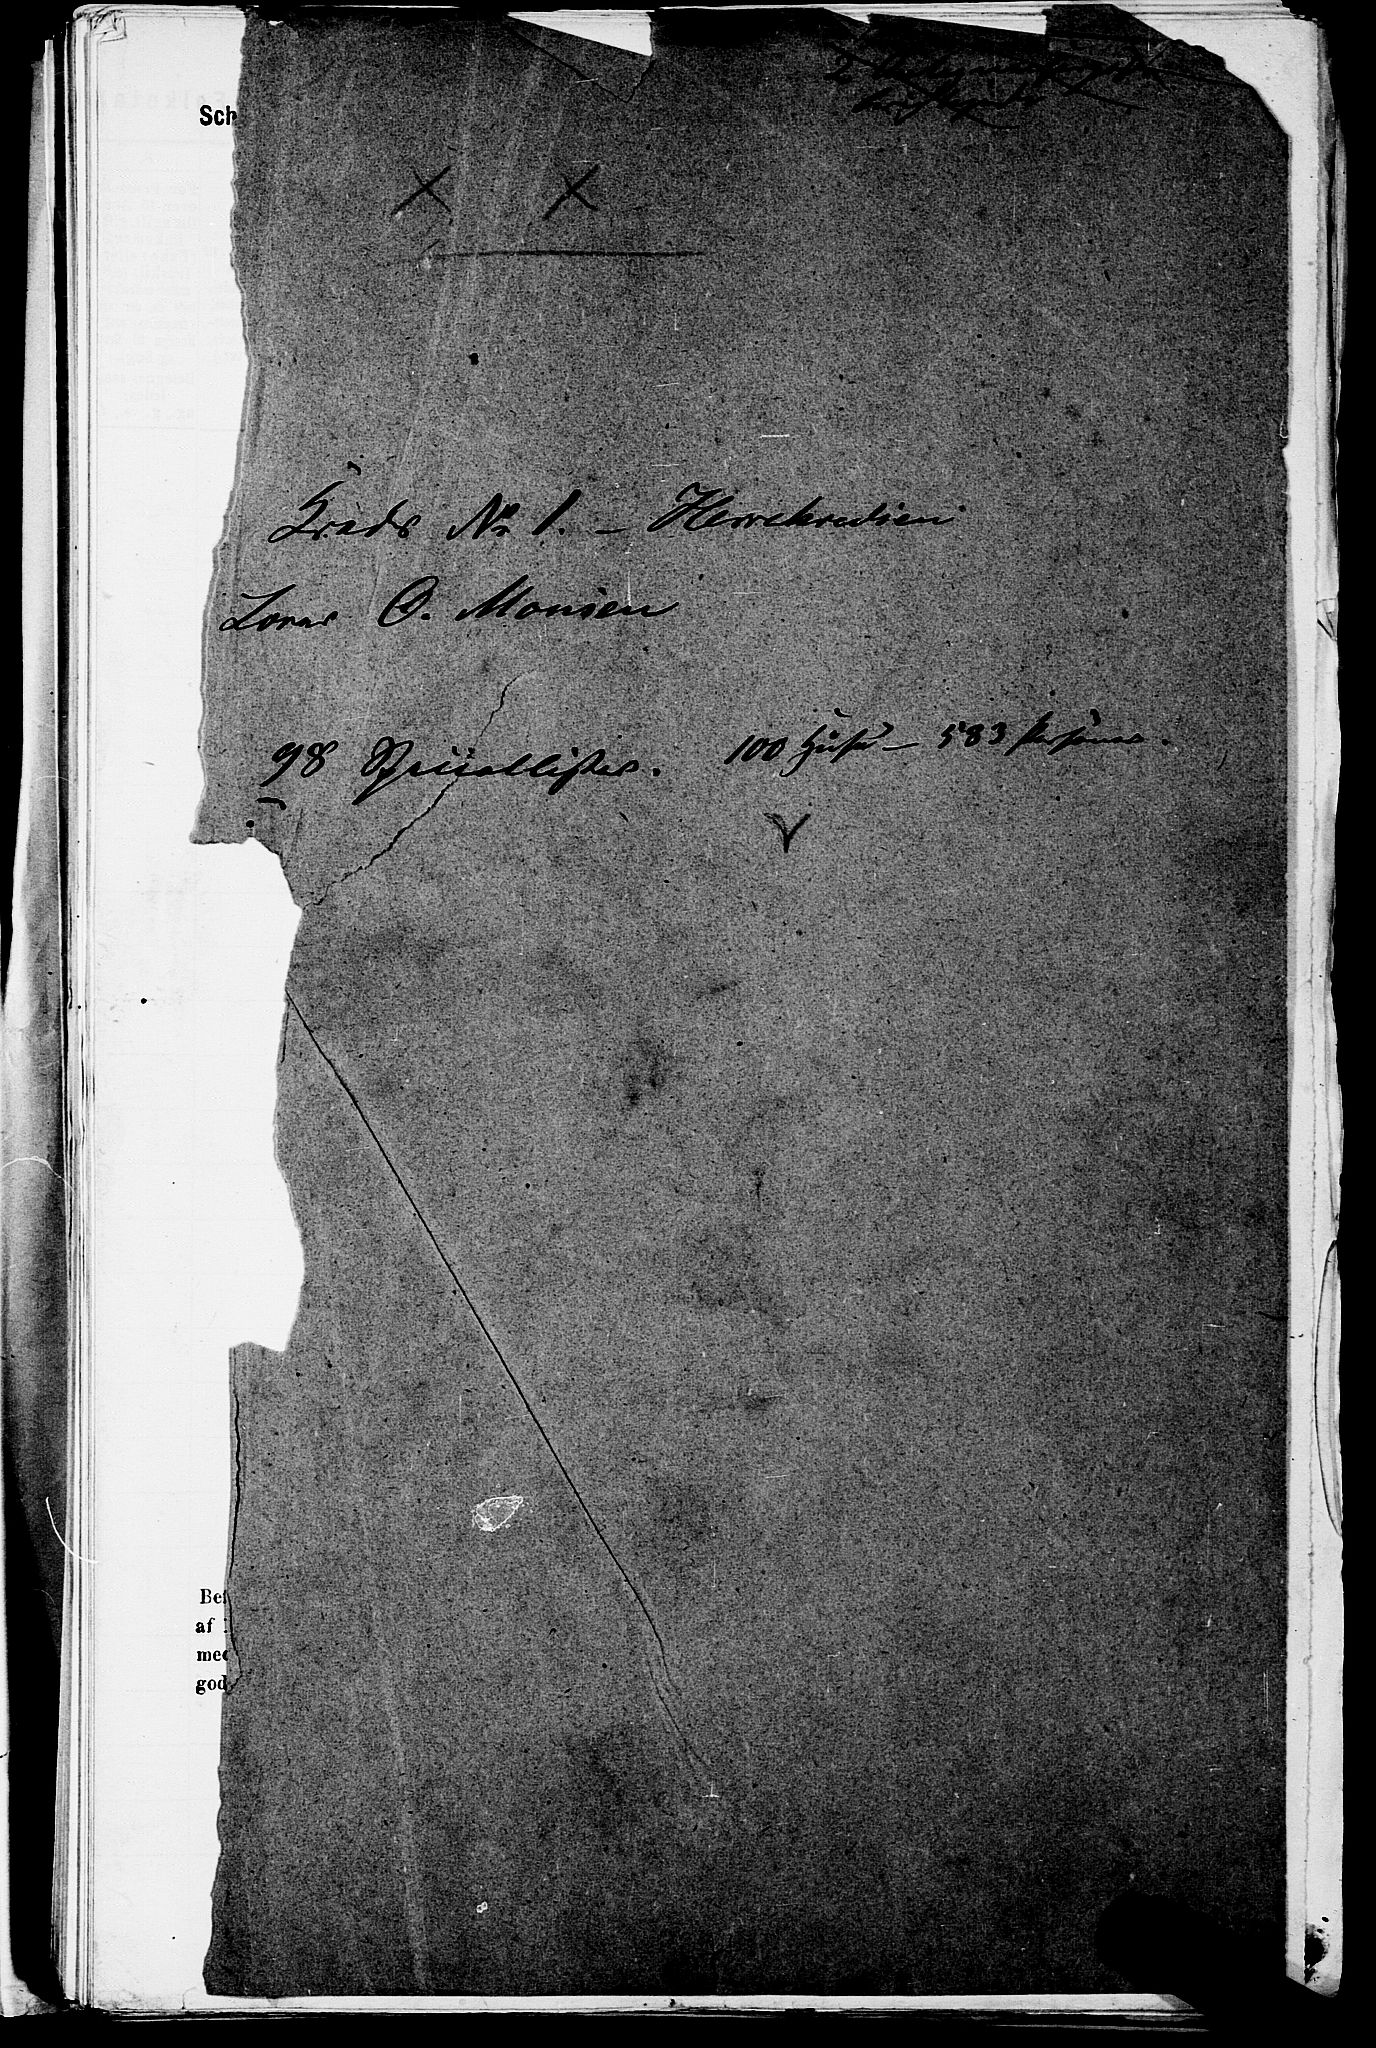 Sch
Kreds No 1. – Herrekredsen
Lærer O. Monsen
98 Speciallister. 100 Huse – 583 Personer.
Be
af
med
god